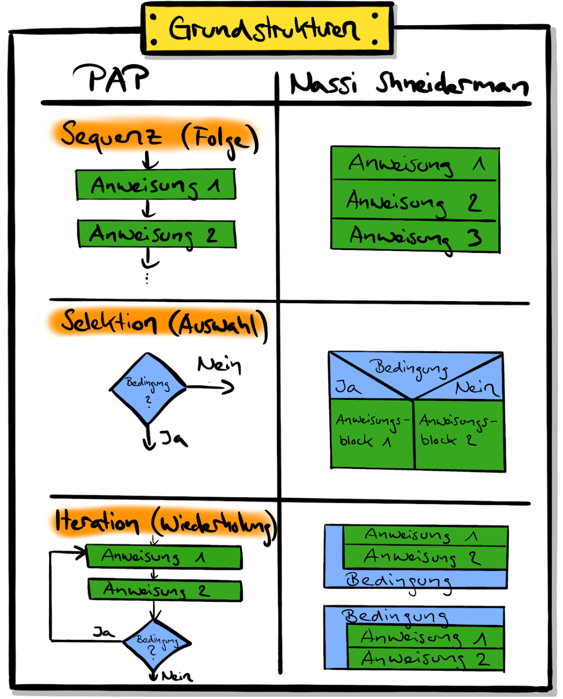 Grundstrukturen
PAP
Nassi Shneiderman
Sequenz (Folge)
Anweisung 1
Anweisung 2
...
Anweisung 1
Anweisung 2
Anweisung 3
Selektion (Auswahl)
Bedingung
?
Nein
Ja
Bedingung
Ja
Nein
Anweisungs-
block 1
Anweisungs-
block 2
Iteration (Wiederholung)
Anweisung 1
Anweisung 2
Ja
Bedingung
?
Nein
Anweisung 1
Anweisung 2
Bedingung
Bedingung
Anweisung 1
Anweisung 2